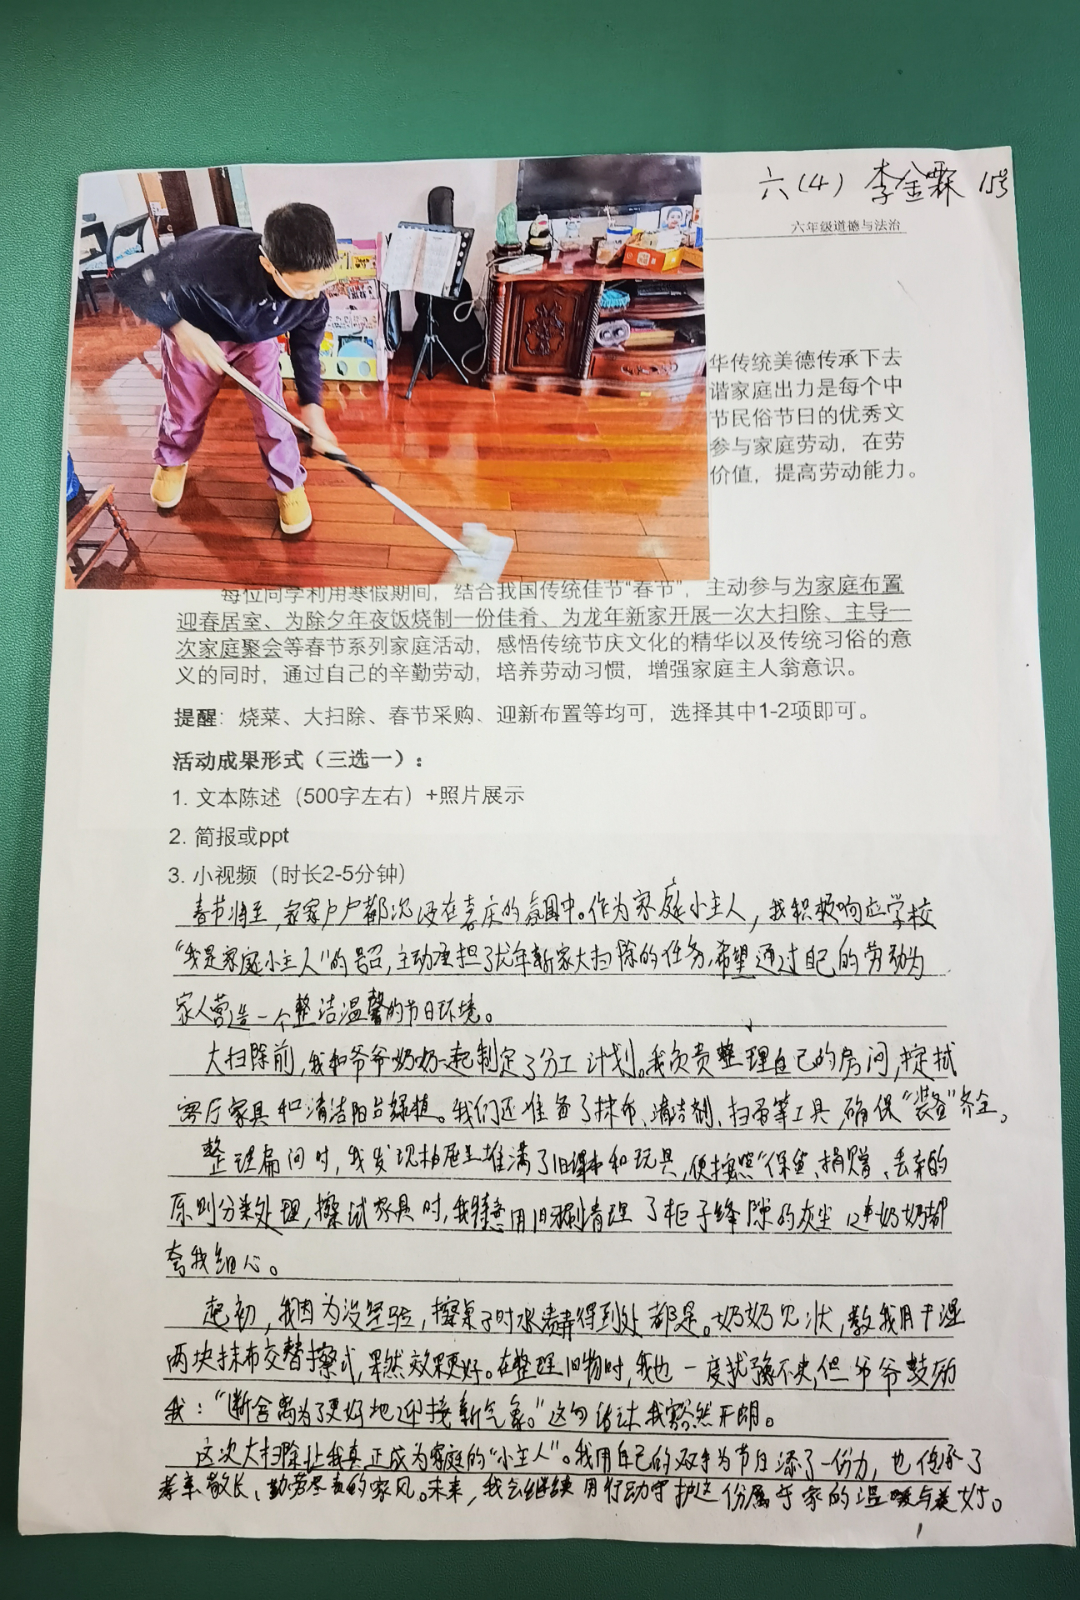 六(4) 李金霖 15号
六年级道德与法治
华传统美德传承下去
谐家庭出力是每个中
节民俗节日的优秀文
参与家庭劳动，在劳
价值，提高劳动能力。
每位同学利用寒假期间，结合我国传统佳节“春节”，主动参与为家庭布置
迎春居室、为除夕年夜饭烧制一份佳肴、为龙年新家开展一次大扫除、主导一
次家庭聚会等春节系列家庭活动，感悟传统节庆文化的精华以及传统习俗的意
义的同时，通过自己的辛勤劳动，培养劳动习惯，增强家庭主人翁意识。
提醒：烧菜、大扫除、春节采购、迎新布置等均可，选择其中1-2项即可。
活动成果形式（三选一）：
1. 文本陈述（500字左右）+照片展示
2. 简报或ppt
3. 小视频（时长2-5分钟）
春节将至，家家户户都沉浸在喜庆的氛围中。作为家庭小主人，我积极响应学校
“我是家庭小主人”的号召，主动承担了龙年新家大扫除的任务，希望通过自己的劳动为
家人营造一个整洁温馨的节日环境。
大扫除前，我和爷爷奶奶一起制定了分工计划。我负责整理自己的房间，擦拭
客厅家具和清洁阳台绿植。我们还准备了抹布、清洁剂、扫帚等工具，确保“装备”齐全。
整理房间时，我发现抽屉里堆满了旧课本和玩具，便按照“保留、捐赠、丢弃的
原则分类处理，擦试家具时，我特意用旧牙刷清理了柜子缝隙的灰尘 连奶奶都
夸我细心。
起初，我因为没经验，擦桌子时水渍弄得到处都是。奶奶见状，教我用干湿
两块抹布交替擦拭，果然效果更好。在整理旧物时，我也一度犹豫不决，但爷爷鼓励
我：“断舍离为了更好地迎接新气象。”这句话让我豁然开朗。
这次大扫除让我真正成为家庭的“小主人”。我用自己的双手为节日添了一份力，也传承了
孝亲敬长、勤劳尽责的家风。未来，我会继续用行动守护这份属于家的温暖与美好。